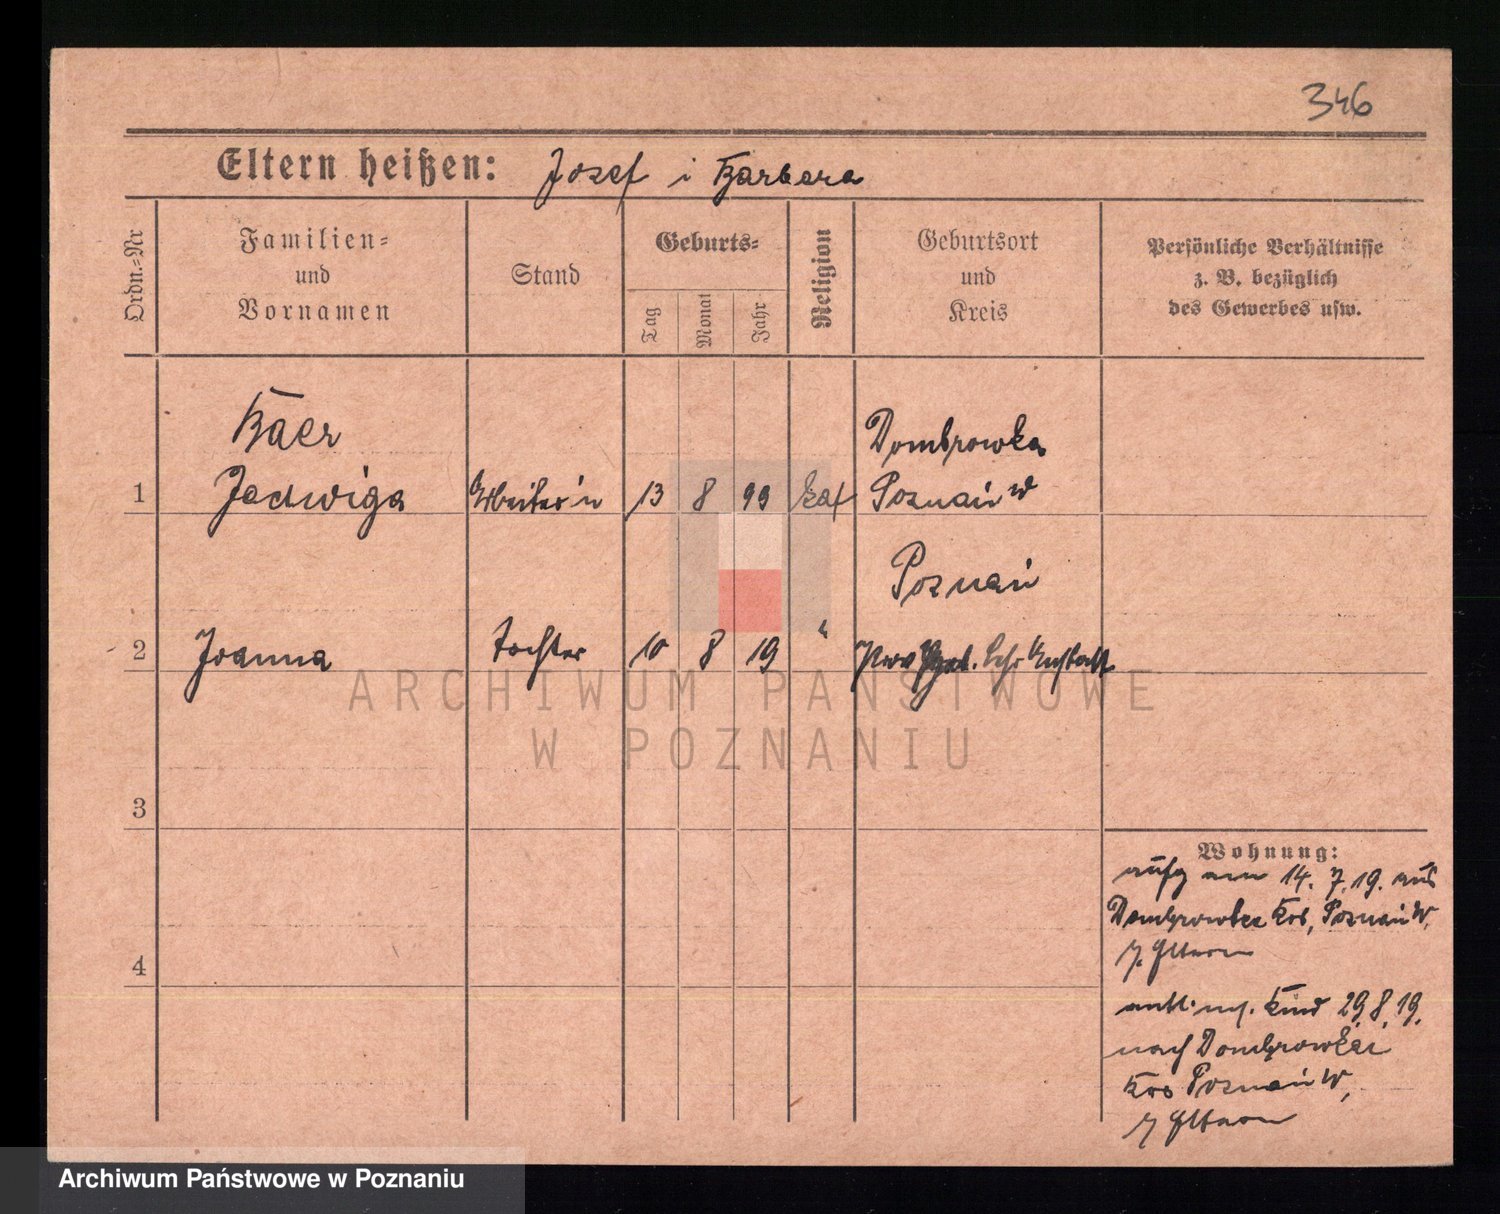 346
Eltern heißen: Jozef i Barbara
Ordn.-Nr
Familien-
und
Vornamen
Stand
Geburts-
Tag
Monat
Jahr
Religion
Geburtsort
und
Kreis
Persönliche Verhältnisse
z. B. bezüglich
des Gewerbes usw.
Baer Dombrowka
1 Jadwiga Arbeiterin 13 8 99 kat Poznań W
Poznań
2 Joanna Tochter 10 8 19 " Prov
ARCHIWUM PAŃSTWOWE
W POZNANIU
3
Wohnung:
aufg am 14. 7. 19. aus
Dombrowka Krs, Poznań W.
z. Eltern
4
entl. m. Kind 29.8.19.
nach Dombrowka
Krs Poznań W,
z Eltern
Archiwum Państwowe w Poznaniu